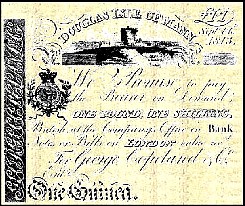 DOUGLAS ISLE OF MANN
£1.1.
Sept. 16
1815.
We Promise to pay
the Bearer on Demand
ONE POUND, ONE SHILLING,
British, at the Company's Office in Bank
Notes or Bills on LONDON value recd
For George Copeland & Co.
One Guinea.